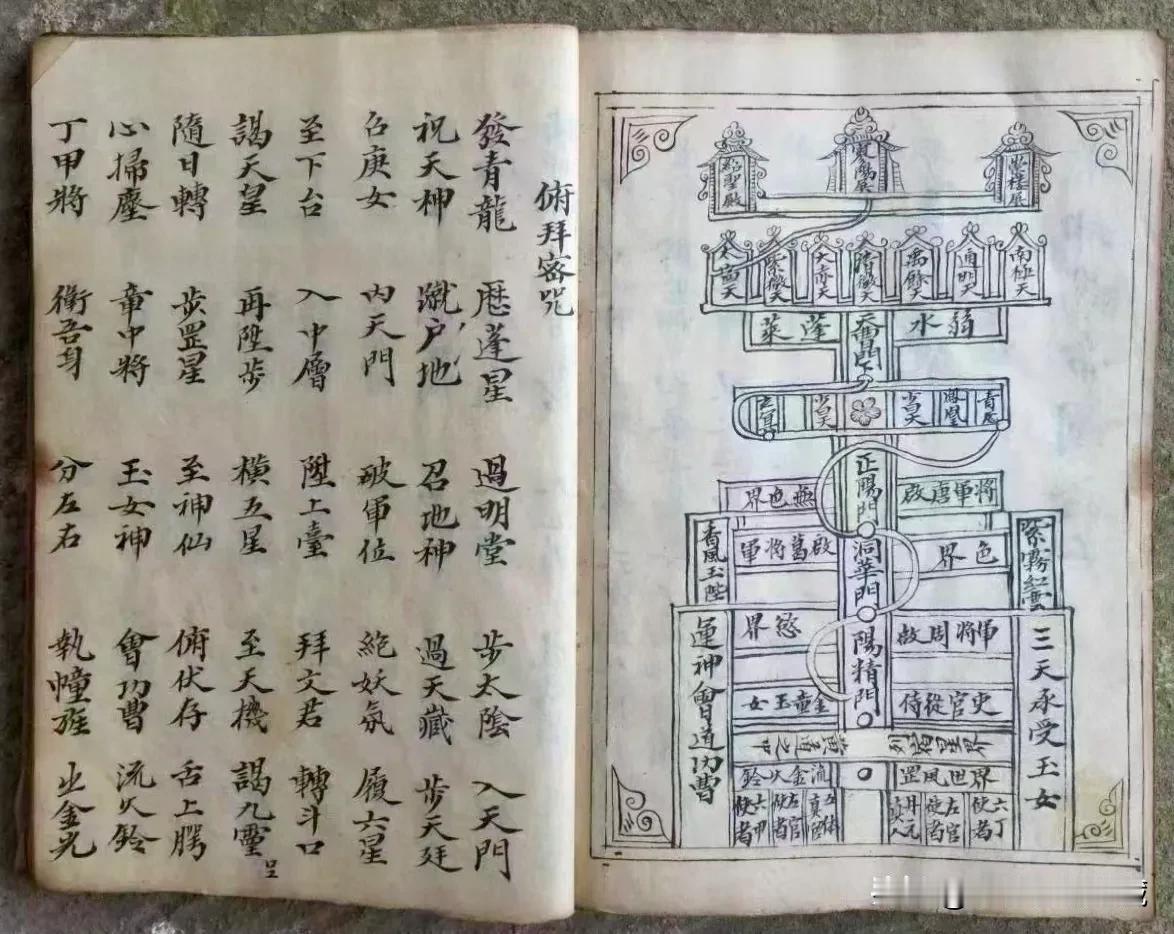 紹聖殿
太
南極天
通明天
弱水
蓬萊
鳳凰
正陽門
將軍唐啟
無色界
紫霧紅雲
青風玉陛
色界
洞華門
啟葛將軍
三天承受玉女
運神會道功曹
軍將周啟
慾界
陽精門
吏官從侍
金童玉女
界世風罡
流金火鈴
六丁使者
左官使者
六甲使者
俯拜密咒
發青龍 歷蓬星 過明堂 步太陰 入天門
祝天神 蹴户地 召地神 過天藏 步天廷
召庚女 内天門 破軍位 絕妖氛 履六星
至下台 入中層 陞上臺 拜文君 轉斗口
謁天皇 再陞步 橫五星 至天機 謁九靈
隨日轉 步罡星 至神仙 俯伏存 舌上腭
心掃塵 章中將 玉女神 會功曹 流火鈴
丁甲將 衛吾身 分左右 執幢旌 出金光